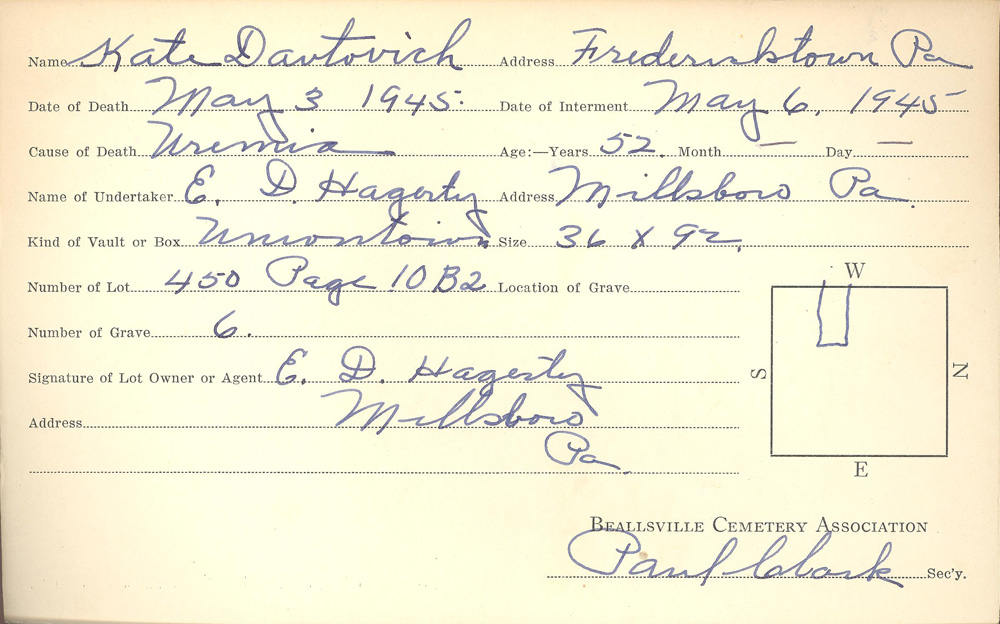 Name Kate Davtovich Address Fredericktown Pa
Date of Death May 3 1945. Date of Interment May 6, 1945
Cause of Death Uremia Age:—Years 52. Month — Day —
Name of Undertaker E. D. Hagerty Address Millsboro Pa.
Kind of Vault or Box Uniontown Size 36 x 92.
Number of Lot 450 Page 10 B2 Location of Grave
W
Number of Grave 6.
Signature of Lot Owner or Agent E. D. Hagerty
S N
Address Millsboro
Pa.
E
BEALLSVILLE CEMETERY ASSOCIATION
Paul Clark Sec'y.